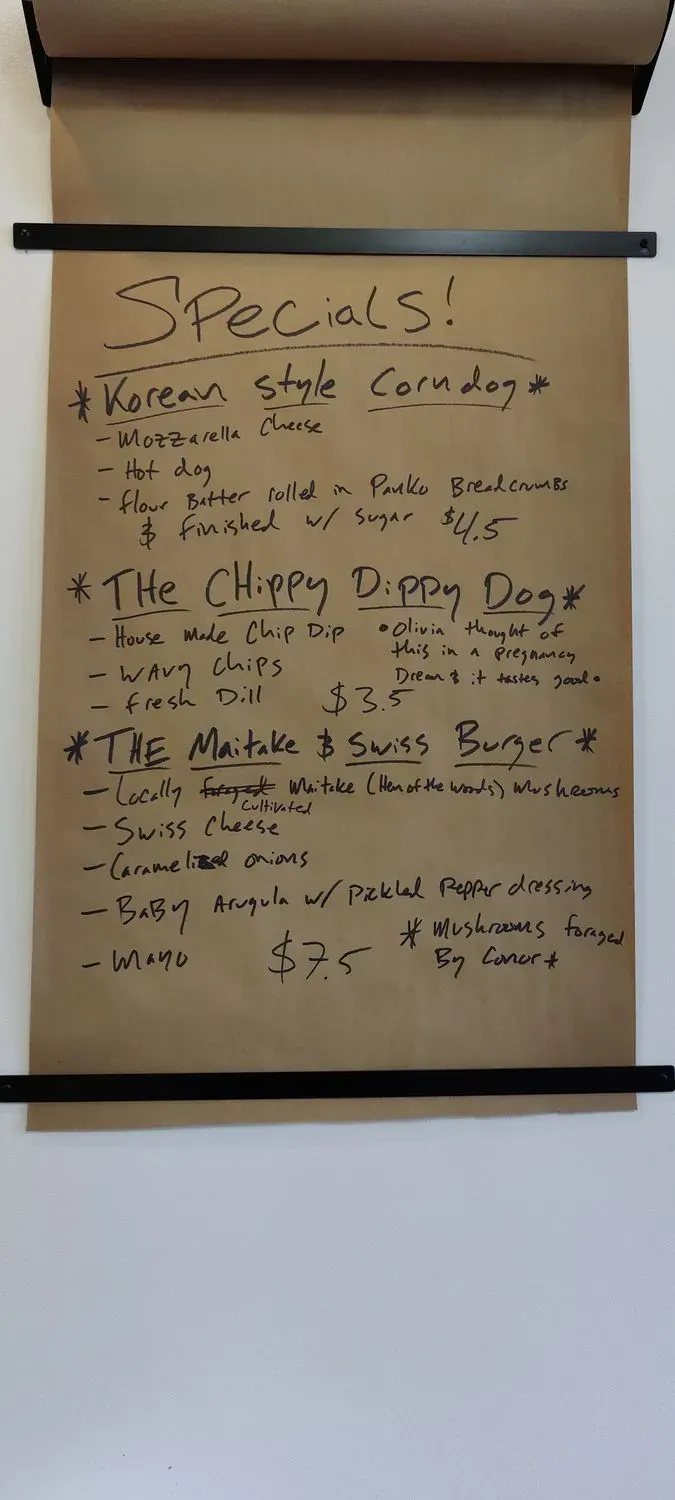 Specials!
* Korean style Corndog *
- Mozzarella Cheese
- Hot dog
- flour Batter rolled in Panko Breadcrumbs
& finished w/ sugar $4.5
* THe CHippy Dippy Dog *
- House made Chip Dip
- WAvy Chips
- fresh Dill $3.5
• Olivia thought of
this in a pregnancy
Dream & it tastes good •
* THE Maitake & Swiss Burger *
- Locally foraged Maitake (Hen of the woods) Mushrooms
Cultivated
- Swiss Cheese
- Caramelized onions
- BaBy Arugula w/ Pickled Pepper dressing
- Mayo $7.5
* Mushrooms foraged
By Conor *